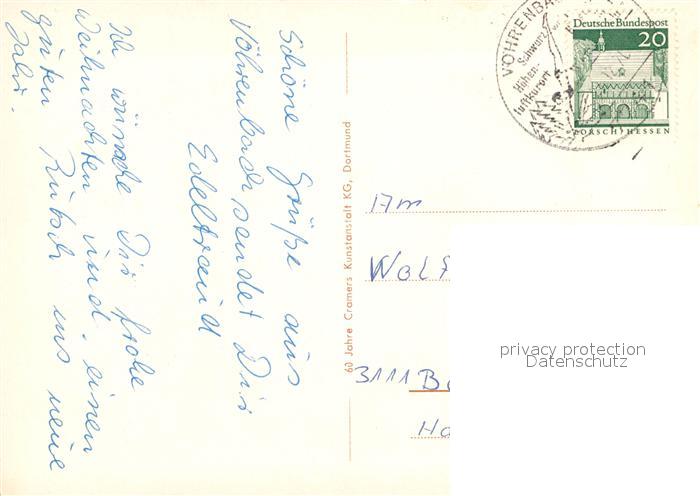 Schöne Grüße aus
Vöhrenbach sendet Dir
Edeltraud
Ich wünsche Dir frohe
Weihnachten und einen
guten Rutsch ins neue
Jahr.
60 Jahre Cramers Kunstanstalt KG, Dortmund
VÖHRENBA
Schwarzw
Höhen-
luftkurort
Deutsche Bundespost
20
LORSCH/HESSEN
Wolf
3111 B
privacy protection
Datenschutz